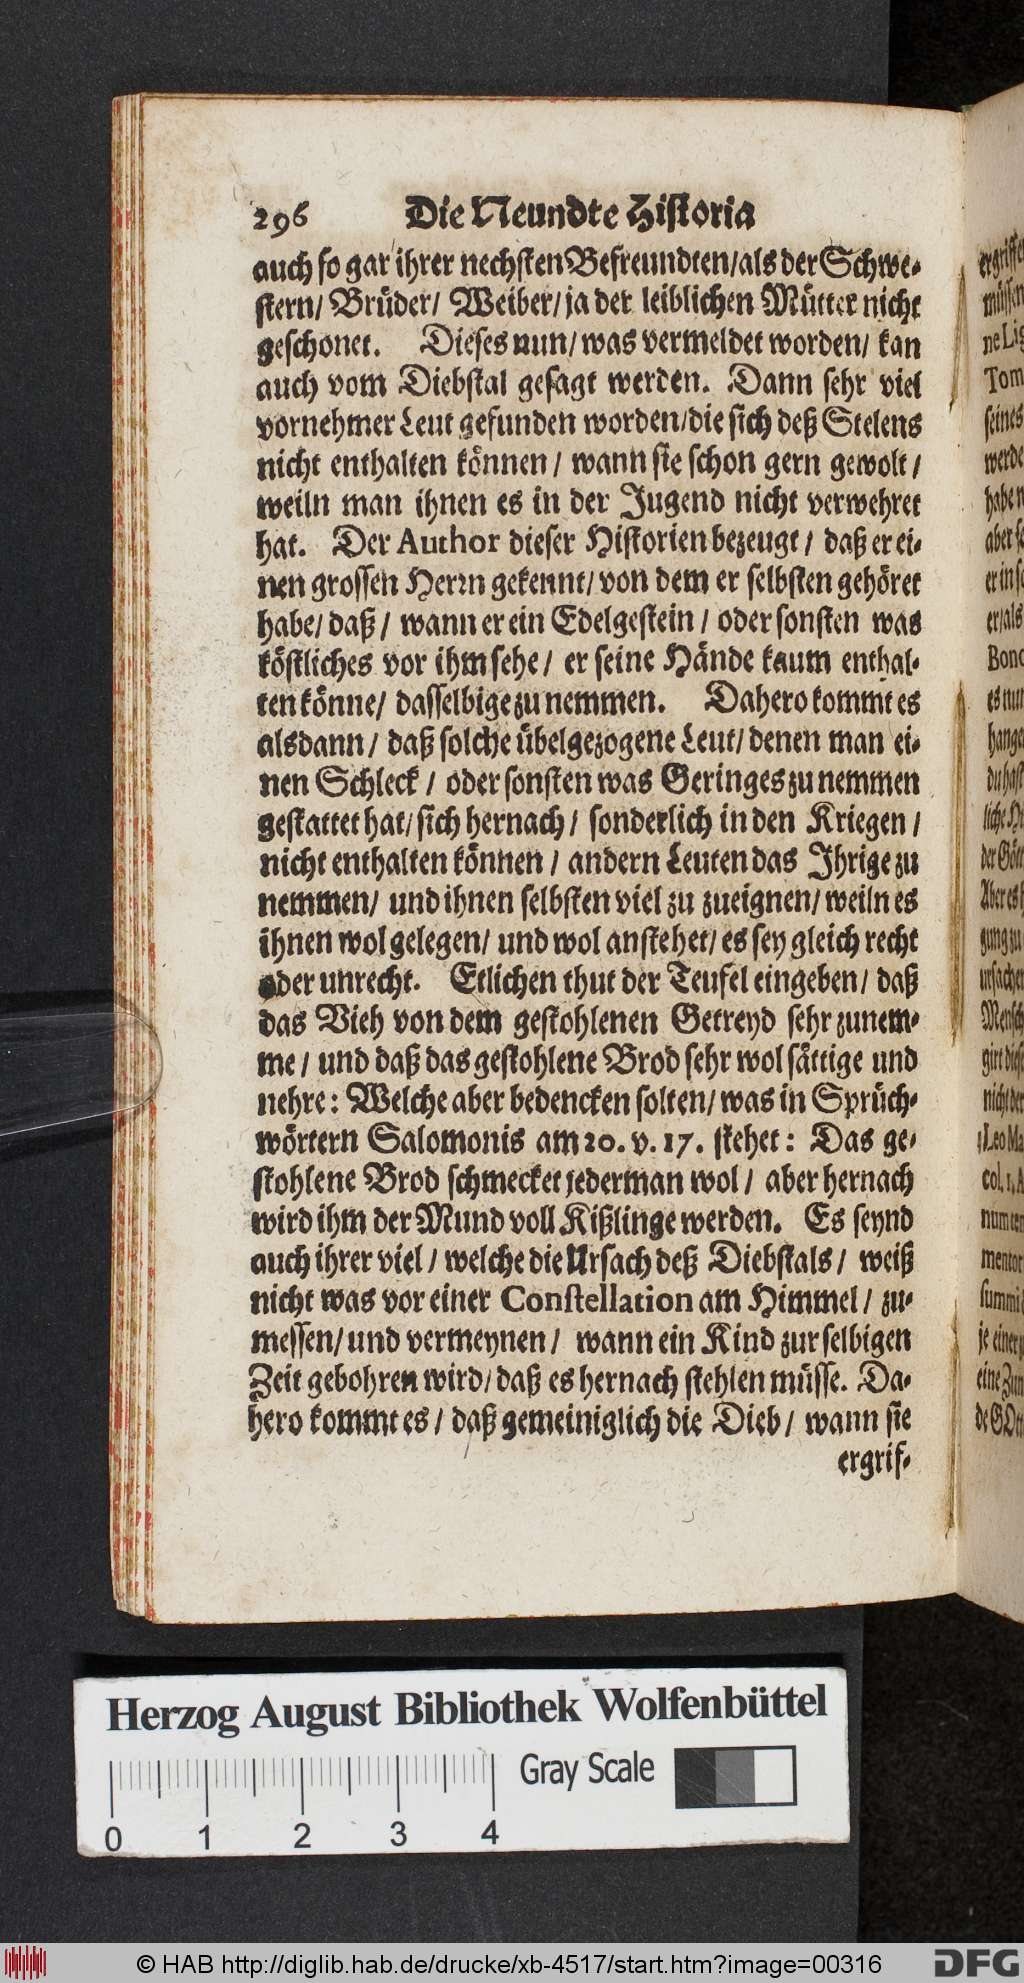 296 Die Neundte Historia
auch so gar ihrer nechsten Befreundten/ als der Schwe-
stern/ Brüder/ Weiber/ ja der leiblichen Mütter nicht
geschonet. Dieses nun/ was vermeldet worden/ kan
auch vom Diebstal gesagt werden. Dann sehr viel
vornehmer Leut gefunden worden/ die sich deß Stelens
nicht enthalten können/ wann sie schon gern gewolt/
weiln man ihnen es in der Jugend nicht verwehret
hat. Der Author dieser Historien bezeugt/ daß er ei-
nen grossen Herrn gekennt/ von dem er selbsten gehöret
habe/ daß/ wann er ein Edelgestein/ oder sonsten was
köstliches vor ihm sehe/ er seine Hände kaum enthal-
ten könne/ dasselbige zu nemmen. Dahero kommt es
alsdann/ daß solche übelgezogene Leut/ denen man ei-
nen Schleck/ oder sonsten was Geringes zu nemmen
gestattet hat/ sich hernach/ sonderlich in den Kriegen/
nicht enthalten können/ andern Leuten das Ihrige zu
nemmen/ und ihnen selbsten viel zu zueignen/ weiln es
ihnen wol gelegen/ und wol anstehet/ es sey gleich recht
oder unrecht. Etlichen thut der Teufel eingeben/ daß
das Vieh von dem gestohlenen Getreyd sehr zunem-
me/ und daß das gestohlene Brod sehr wol sättige und
nehre: Welche aber bedencken solten/ was in Sprüch-
wörtern Salomonis am 20. v. 17. stehet: Das ge-
stohlene Brod schmecket jederman wol/ aber hernach
wird ihm der Mund voll Kißlinge werden. Es seynd
auch ihrer viel/ welche die Ursach deß Diebstals/ weiß
nicht was vor einer Constellation am Himmel/ zu-
messen/ und vermeynen/ wann ein Kind zur selbigen
Zeit gebohren wird/ daß es hernach stehlen müsse. Da-
hero kommt es/ daß gemeiniglich die Dieb/ wann sie
ergrif-
Tom
seines
Bono
Leo Ma
col. 1. A
Herzog August Bibliothek Wolfenbüttel
Gray Scale
0 1 2 3 4
© HAB http://diglib.hab.de/drucke/xb-4517/start.htm?image=00316
DFG